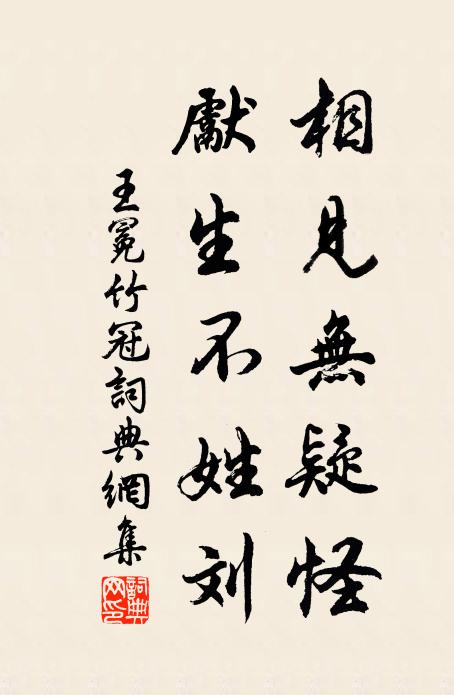 相見無疑怪
獻生不姓刘
王冕竹冠詞典網集
詞典网印